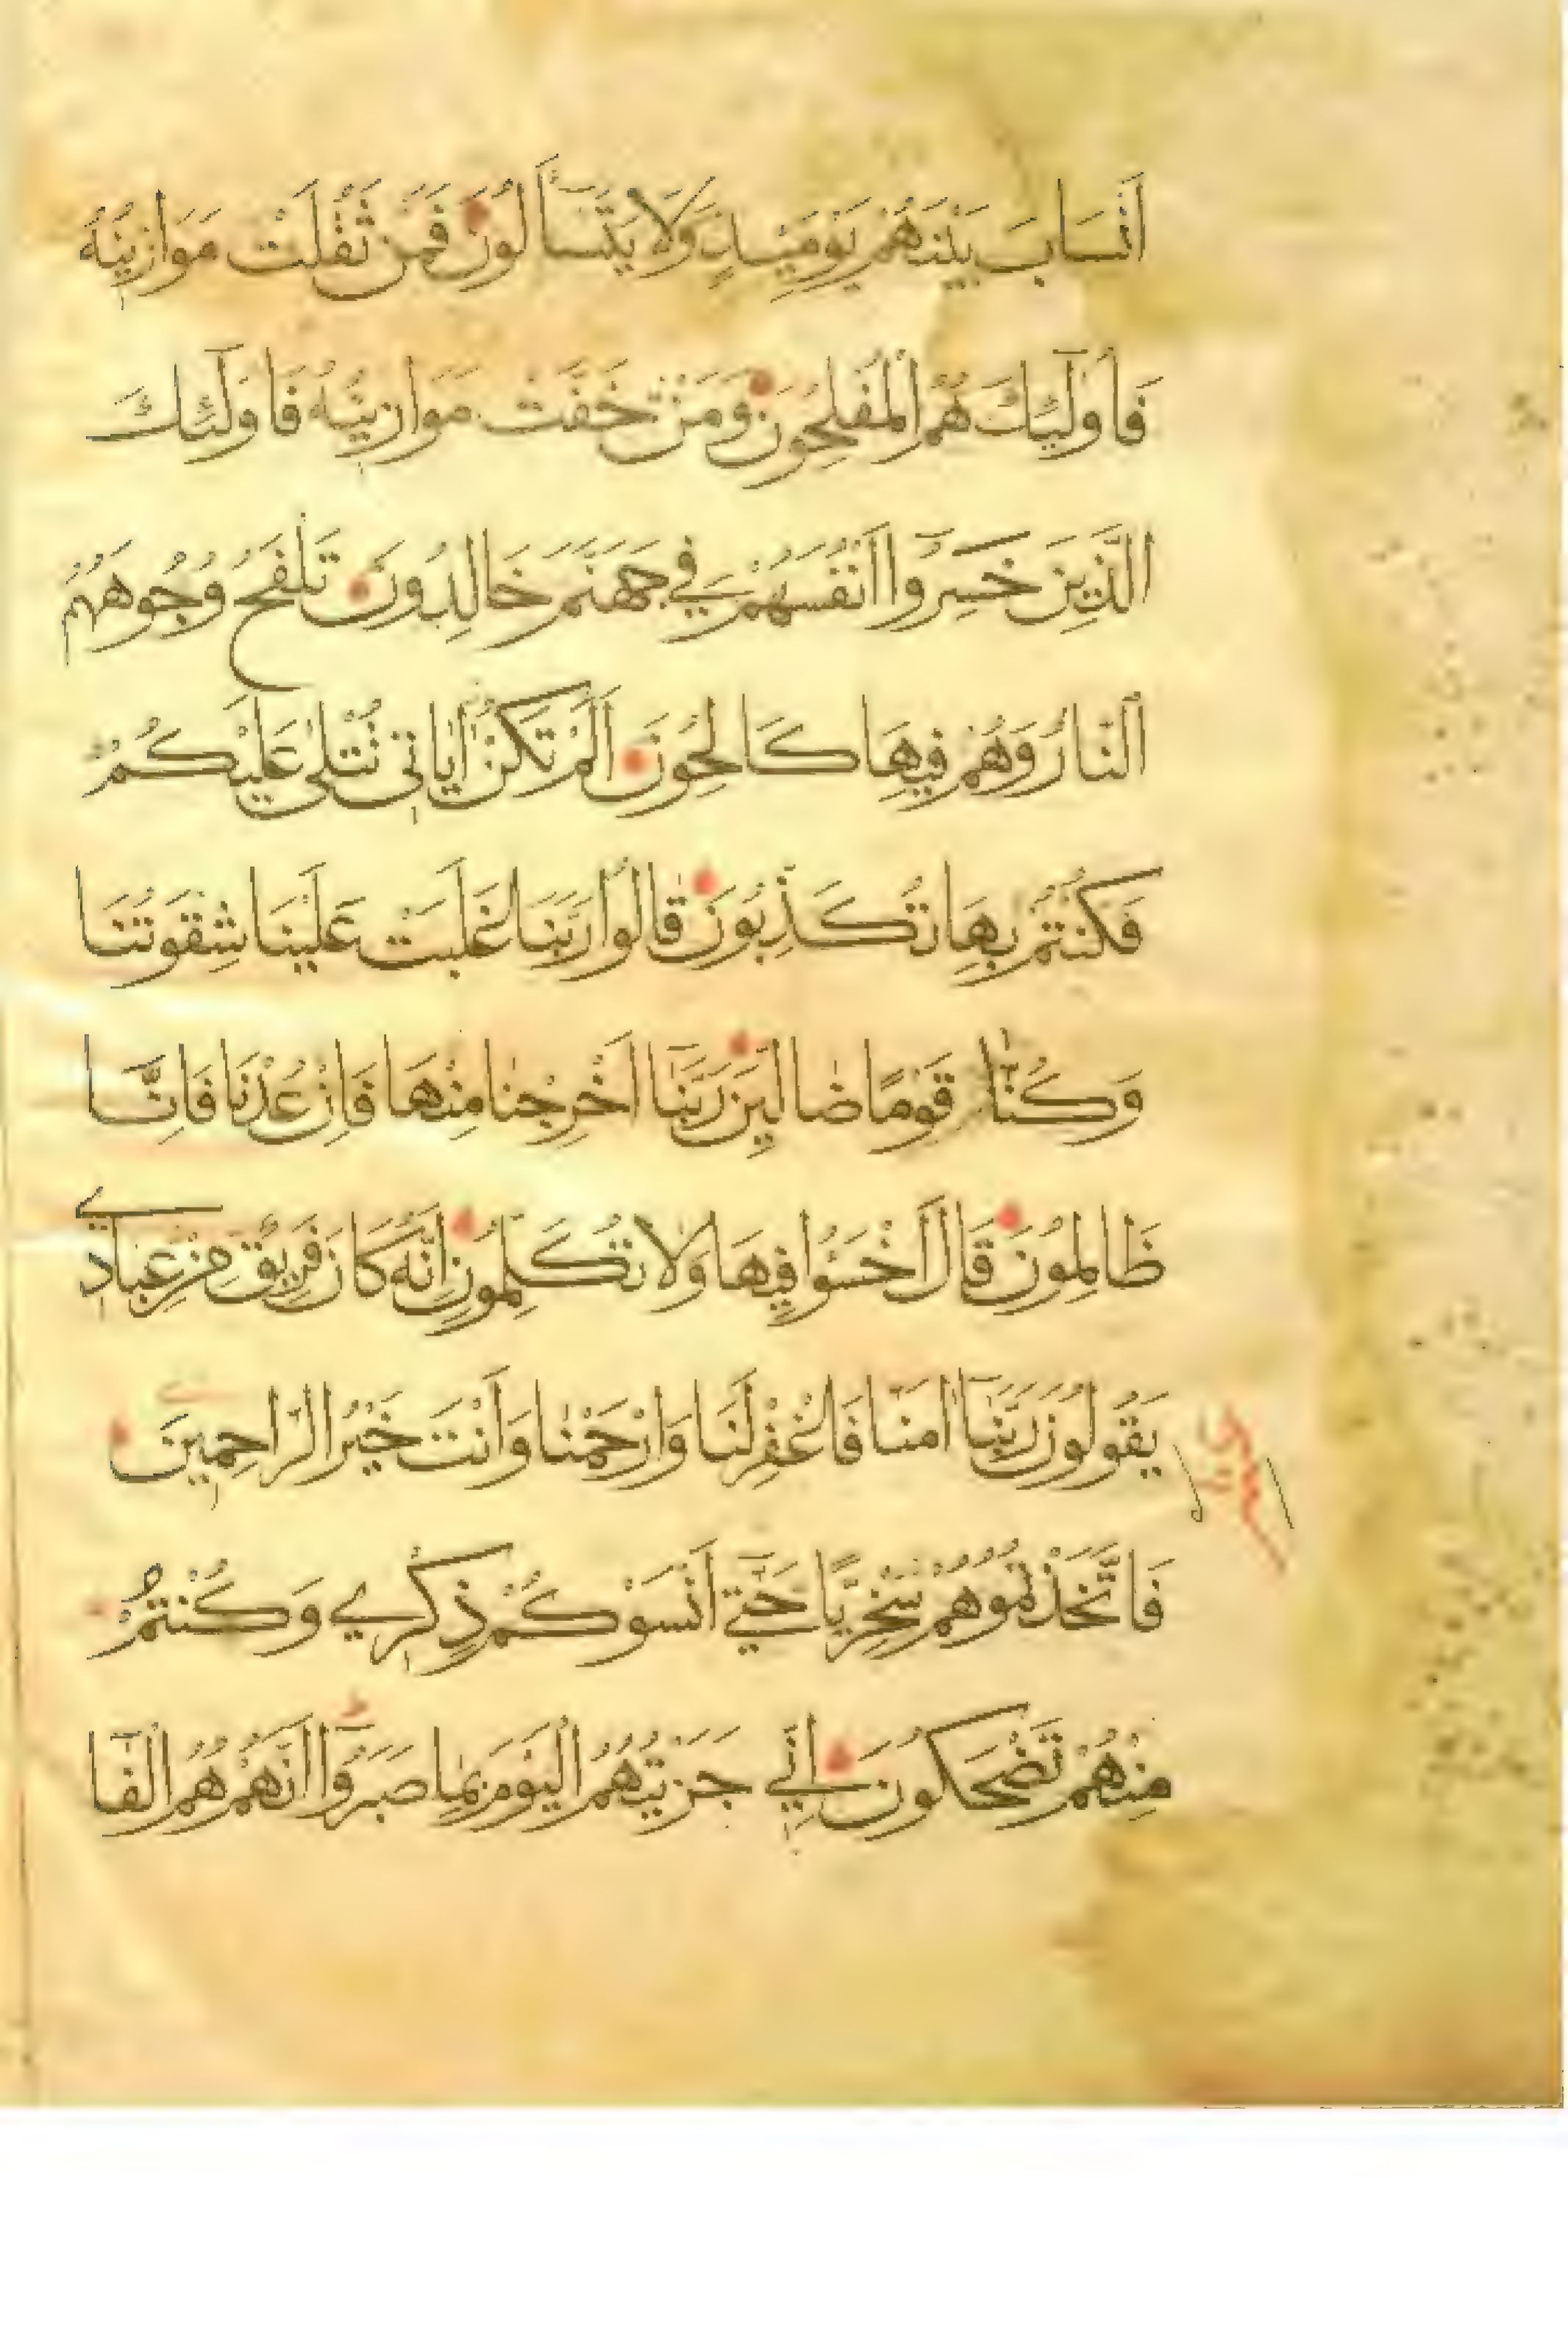 اَنْسَابَ بَيْنَهُمْ يَوْمَئِذٍ وَلَا يَتَسَآءَلُونَ فَمَنْ ثَقُلَتْ مَوَازِينُهُ
فَاُولٰٓئِكَ هُمُ الْمُفْلِحُونَ وَمَنْ خَفَّتْ مَوَازِينُهُ فَاُولٰٓئِكَ
الَّذِينَ خَسِرُوٓا اَنْفُسَهُمْ فِي جَهَنَّمَ خَالِدُونَ تَلْفَحُ وُجُوهَهُمُ
النَّارُ وَهُمْ فِيهَا كَالِحُونَ اَلَمْ تَكُنْ اٰيَاتِي تُتْلٰى عَلَيْكُمْ
فَكُنْتُمْ بِهَا تُكَذِّبُونَ قَالُوا رَبَّنَا غَلَبَتْ عَلَيْنَا شِقْوَتُنَا
وَكُنَّا قَوْمًا ضَالِّينَ رَبَّنَآ اَخْرِجْنَا مِنْهَا فَاِنْ عُدْنَا فَاِنَّا
ظَالِمُونَ قَالَ اخْسَؤُا فِيهَا وَلَا تُكَلِّمُونِ اِنَّهُ كَانَ فَرِيقٌ مِنْ عِبَادِي
يَقُولُونَ رَبَّنَآ اٰمَنَّا فَاغْفِرْ لَنَا وَارْحَمْنَا وَاَنْتَ خَيْرُ الرَّاحِمِينَ
فَاتَّخَذْتُمُوهُمْ سِخْرِيًّا حَتّٰٓى اَنْسَوْكُمْ ذِكْرِي وَكُنْتُمْ
مِنْهُمْ تَضْحَكُونَ اِنِّي جَزَيْتُهُمُ الْيَوْمَ بِمَا صَبَرُوٓا اَنَّهُمْ هُمُ الْفَآ